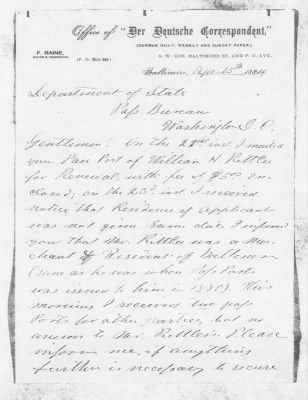 Office of "Der Deutsche Correspondent,"
(GERMAN DAILY, WEEKLY AND SUNDAY PAPER,)
F. RAINE,
EDITOR & PROPRIETOR
(P. O. Box 586)
S. W. COR. BALTIMORE ST. AND P. O. AVE.
Baltimore, Apr. 25th 1884
Department of State
Pass Bureau
Washington D. C.
Gentlemen! On the 22d inst. I mailed
you Pass Port of William H Rittler
for Renewal, with fee of $5.00 en-
closed; on the 23d inst. I received
notice that Residence of Applicant
was not given. Same date I informed
you that Mr. Rittler was a Mer-
chant & Resident of Baltimore
(same as he was when Pass Port
was issued to him in 1880). This
morning I received two pass
Ports for other parties, but no
answer to Mr. Rittler's. Please
inform me, if anything
further is necessary to secure